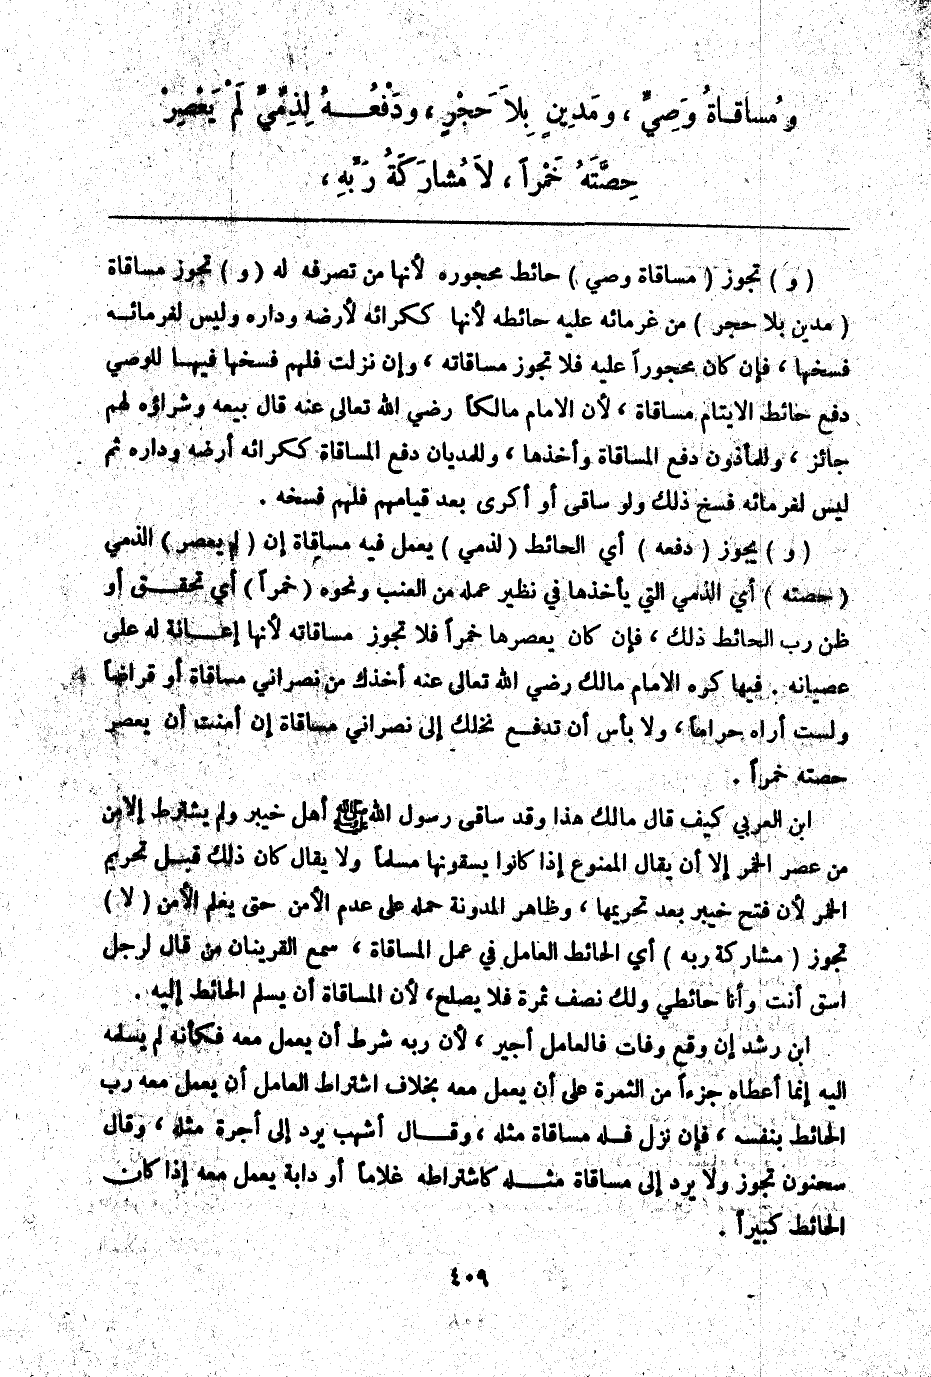 وَمُساقاةُ وَصِيٍّ ، ومَدِينٍ بِلاَ حَجْرٍ ، ودَفْعُــهُ لِذِمِّيٍّ لَمْ يَعْصِرْ
حِصَّتَهُ خَمْراً ، لاَ مُشارَكَةُ رَبِّهِ ،
( و ) تجوز ( مساقاة وصي ) حائط محجوره لأنها من تصرفه له ( و ) تجوز مساقاة
( مدين بلا حجر ) من غرمائه عليه حائطه لأنها ككرائه لأرضه وداره وليس لغرمائــه
فسخها ، فإن كان محجوراً عليه فلا تجوز مساقاته ، وإن نزلت فلهم فسخها فيهــا للوصي
دفع حائط الايتام مساقاة ، لأن الامام مالكاً رضي الله تعالى عنه قال بيعه وشراؤه لهم
جائز ، وللمأذون دفع المساقاة وأخذها ، وللمديان دفع المساقاة ككرائه أرضه وداره ثم
ليس لغرمائه فسخ ذلك ولو ساقى أو أكرى بعد قيامهم فلهم فسخه .
( و ) يجوز ( دفعه ) أي الحائط ( لذمي ) يعمل فيه مساقاة إن ( لم يعصر ) الذمي
( حصته ) أي الذمي التي يأخذها في نظير عمله من العنب ونحوه ( خمراً ) أي تحقــق أو
ظن رب الحائط ذلك ، فإن كان يعصرها خمراً فلا تجوز مساقاته لأنها إعــانة له على
عصيانه . فيها كره الامام مالك رضي الله تعالى عنه أخذك من نصراني مساقاة أو قراضاً
ولست أراه حراماً ، ولا بأس أن تدفــع نخلك إلى نصراني مساقاة إن أمنت أن يعصر
حصته خمراً .
ابن العربي كيف قال مالك هذا وقد ساقى رسول الله ﷺ أهل خيبر ولم يشترط إلا من
من عصر الخمر إلا أن يقال الممنوع إذا كانوا يسقونها مسلماً ولا يقال كان ذلك قبــل تحريم
الخمر لأن فتح خيبر بعد تحريمها ، وظاهر المدونة حمله على عدم الأمن حتى يعلم الأمن ( لا )
تجوز ( مشاركة ربه ) أي الحائط العامل في عمل المساقاة ، سمع القرينان من قال لرجل
اسق أنت وأنا حائطي ولك نصف ثمرة فلا يصلح، لأن المساقاة أن يسلم الحائط إليه .
ابن رشد إن وقع وفات فالعامل أجير ، لأن ربه شرط أن يعمل معه فكأنه لم يسلمه
اليه إنما أعطاه جزءاً من الثمرة على أن يعمل معه بخلاف اشتراط العامل أن يعمل معه رب
الحائط بنفسه ، فإن نزل فــله مساقاة مثله ، وقــال أشهب يرد إلى أجرة مثله ، وقال
سحنون تجوز ولا يرد إلى مساقاة مثــله كاشتراطه غلاماً أو دابة يعمل معه إذا كان
الحائط كبيراً .
٤٠٩